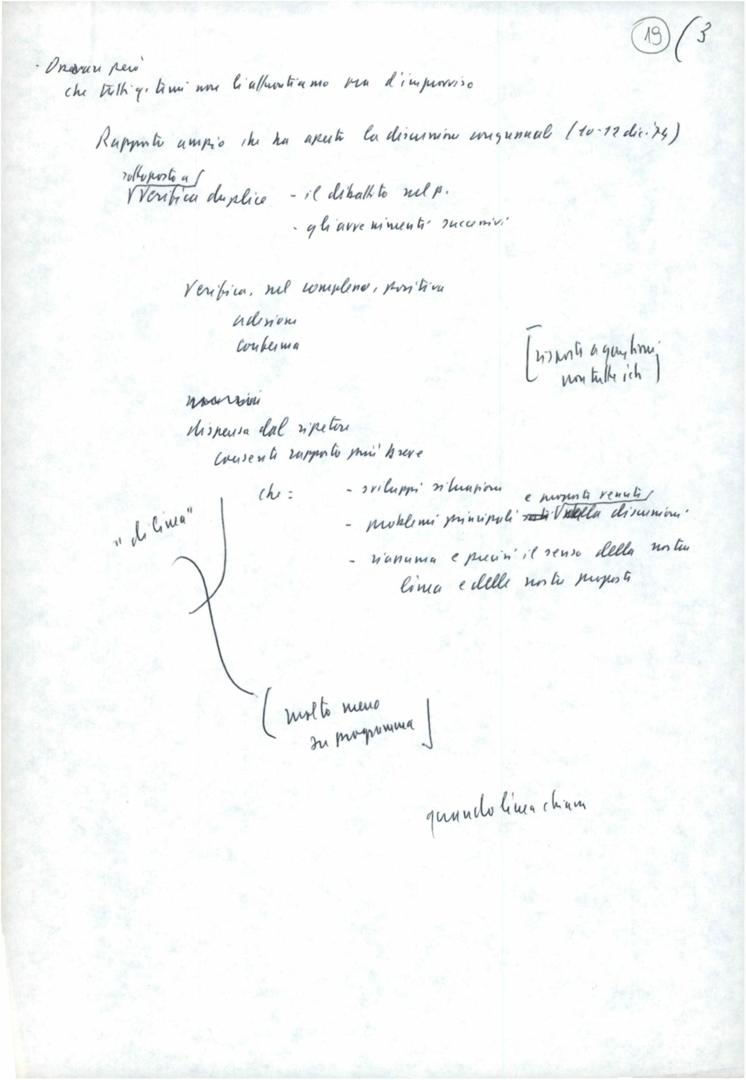 19 (3
· Osservare però
che tutti q. temi non li affrontiamo ora d'improvviso
Rapporto ampio che ha aperto la discussione congressuale (10-12 dic. '74)
sottoposto a
Verifica duplice - il dibattito nel p.
- gli avvenimenti successivi
Verifica, nel complesso, positiva
adesione
conferma
[risposte a questioni,
non tutte ich]
dispensa dal ripetere
consente rapporto più breve
che: - sviluppi situazione
e proposte venute
- problemi principali dalla discussione
"di linea"
- riassuma e precisi il senso della nostra
linea e delle nostre proposte
(molto meno
su programma]
quando linea chiara